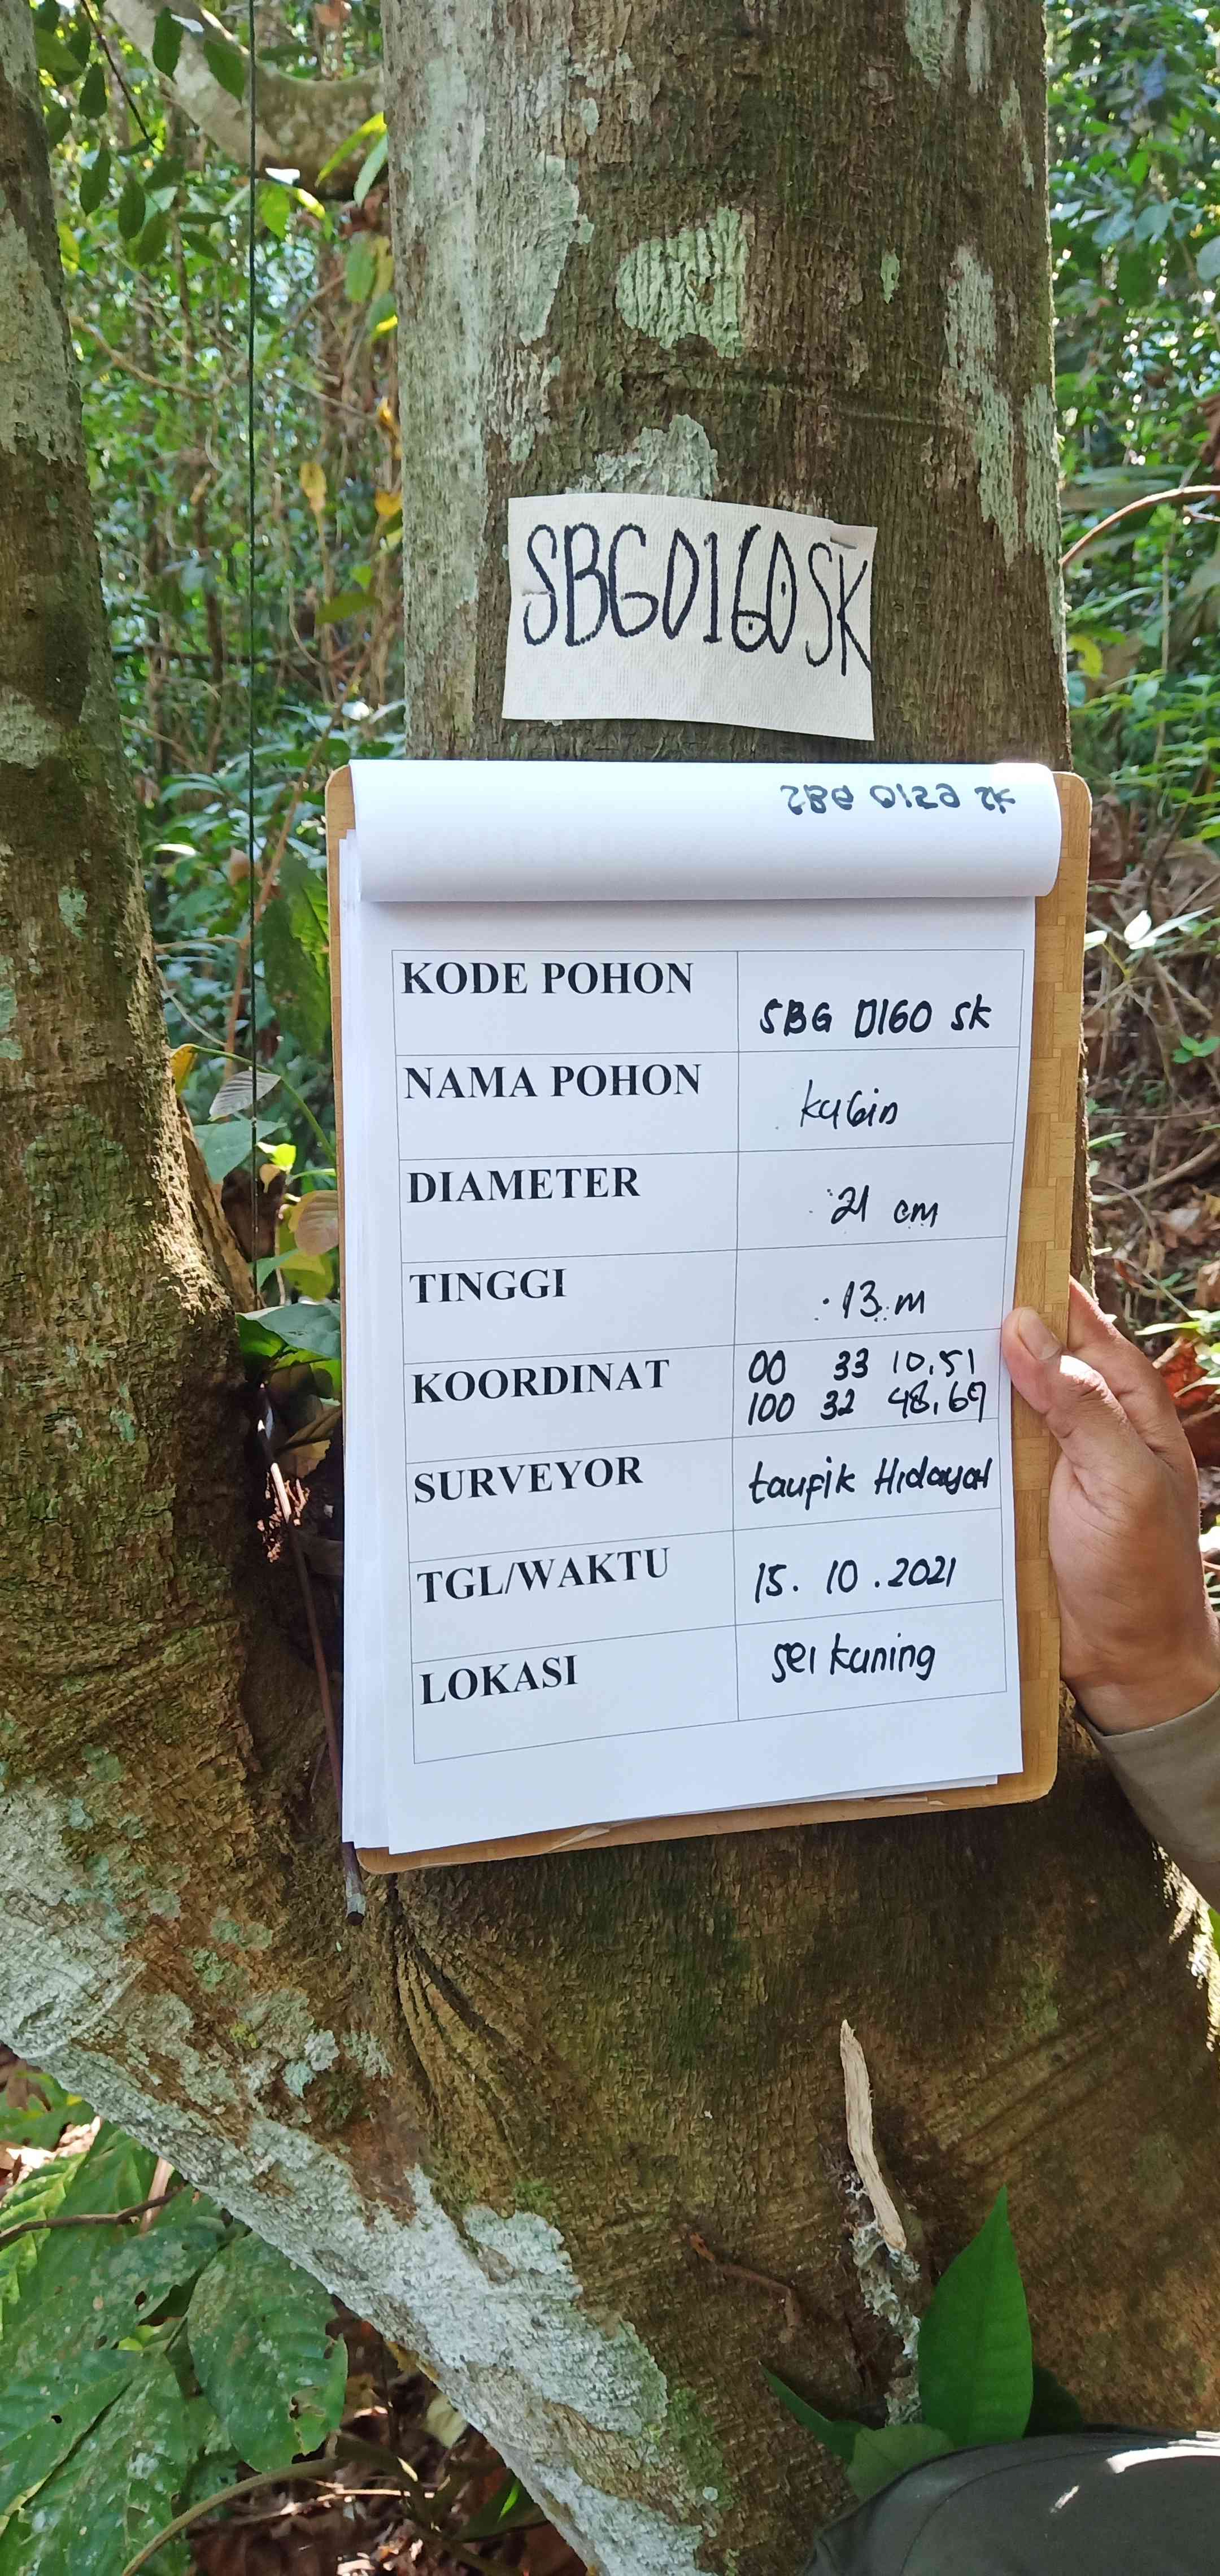 SBG0160SK
KODE POHON
SBG 0160 SK
NAMA POHON
kubin
DIAMETER
21 cm
TINGGI
13 m
KOORDINAT
00 33 10,51
100 32 48,69
SURVEYOR
taufik Hidayat
TGL/WAKTU
15.10.2021
LOKASI
sei kuning